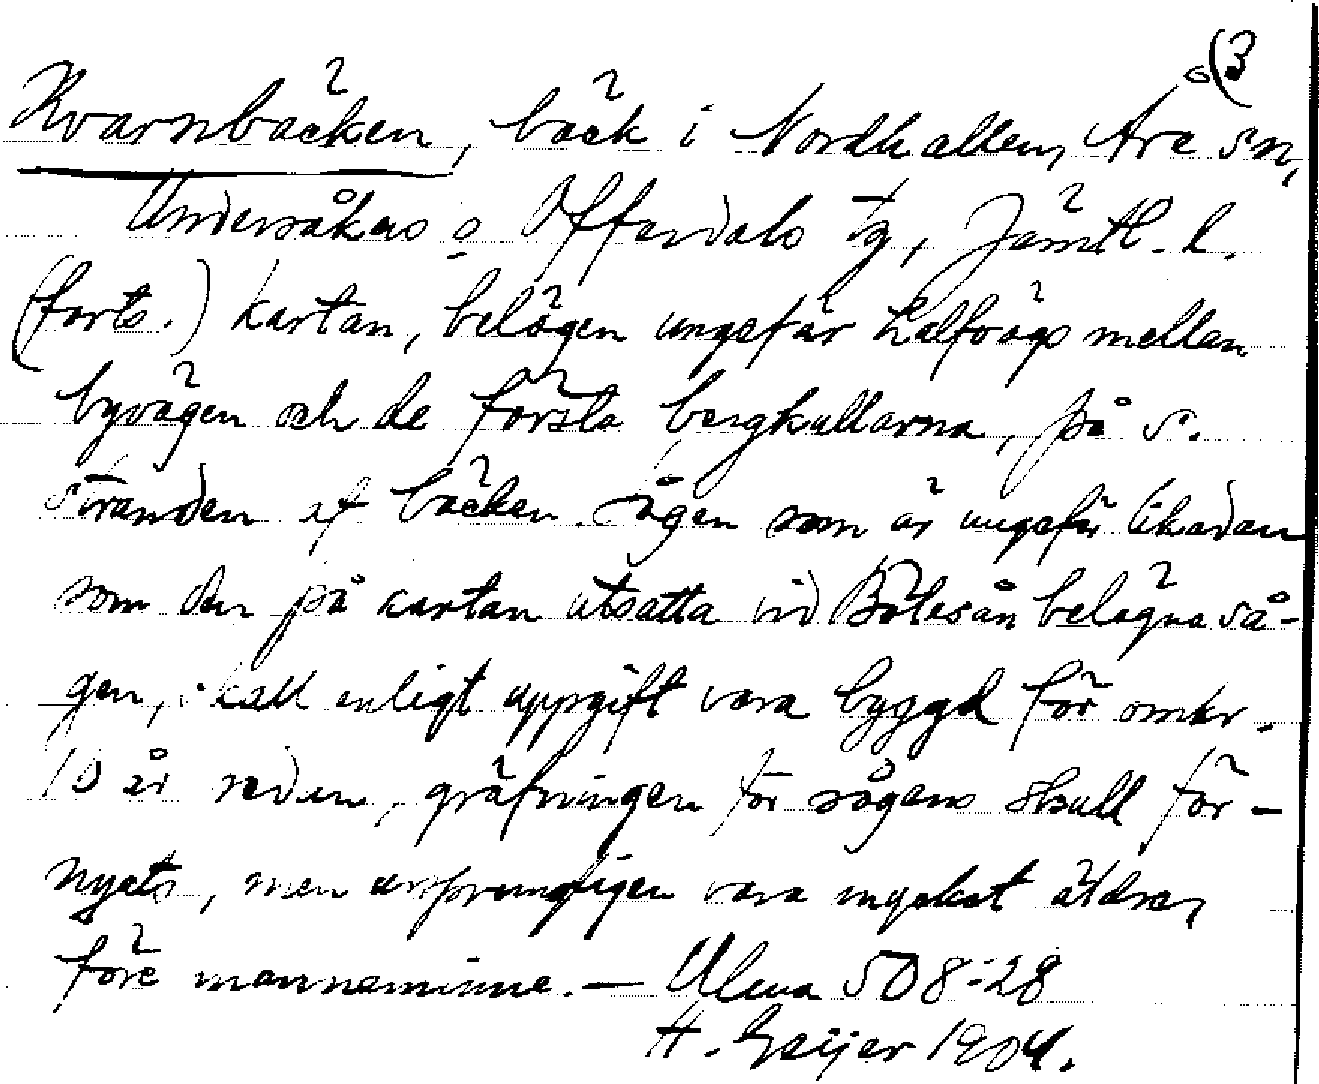 (3
Kvarnbäcken, bäck i Nordhallen, Åre sn,
Undersåkers o Offerdals tg, Jämtl. l.
(forts.) kartan, belägen ungefär halfvägs mellan
byvägen och de första bergkullarna, på s.
stranden af bäcken. Sågen som är ungefär likadan
som den på kartan utsatta vid Bölesån belägna så-
gen, skall enligt uppgift vara byggd för omkr.
10 år sedan, gräfningen för sågens skull för-
nyats, men ursprungligen vara mycket äldre,
före mannaminne. — Ulma 508:28
H. Geijer 1904.